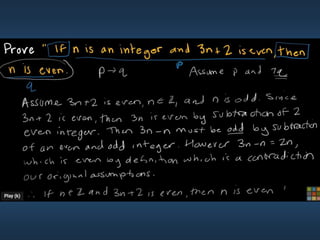 Prove "If n is an integer and 3n+2 is even, then
n is even.
p → q
p
Assume p and ¬q
q
Assume 3n+2 is even, n ∈ Z, and n is odd. Since
3n+2 is even, then 3n is even by subtraction of 2
even integer. Then 3n-n must be odd by subtraction
of an even and odd integer. However 3n-n = 2n,
which is even by definition which is a contradiction
our original assumptions.
∴ if n∈Z and 3n+2 is even, then n is even
Play (k)